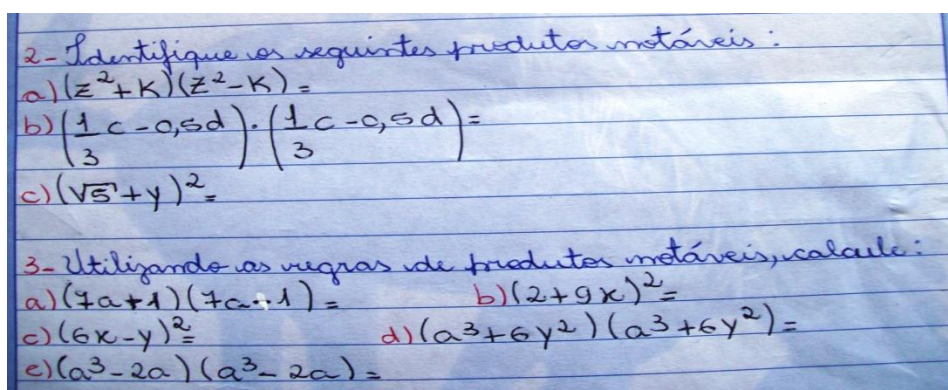 2- Identifique os seguintes produtos notáveis:
a) (z²+k)(z²-k)=
b) (1/3 c - 0,5d).(1/3 c - 0,5d)=
c) (√5+y)²=
3- Utilizando as regras de produtos notáveis, calcule:
a) (7a+1)(7a+1)= b) (2+9x)²=
c) (6x-y)²= d) (a³+6y²)(a³+6y²)=
e) (a³-2a)(a³-2a)=